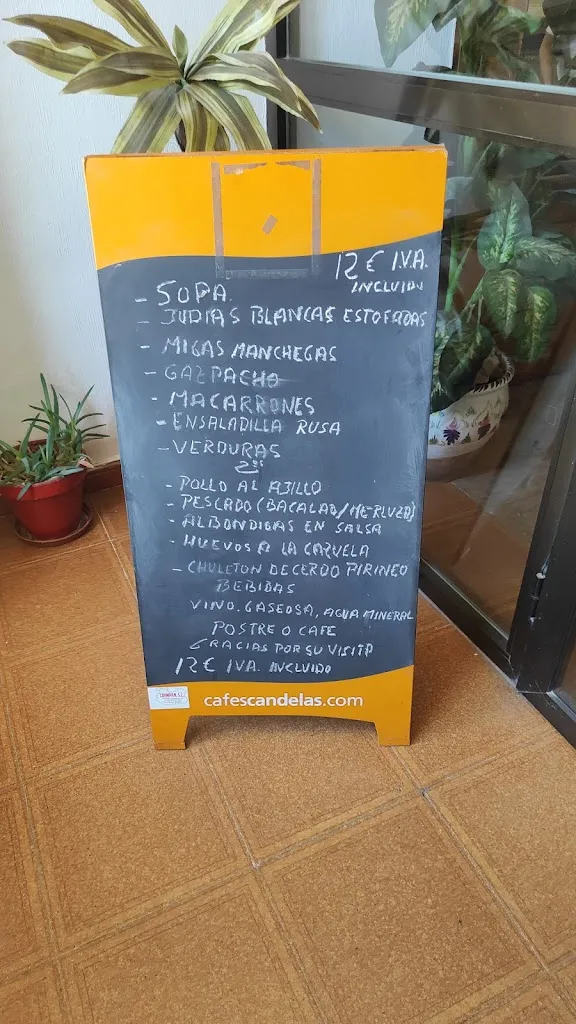 12 € I.V.A.
INCLUIDO
- SOPA
- JUDIAS BLANCAS ESTOFADAS
- MIGAS MANCHEGAS
- GAZPACHO
- MACARRONES
- ENSALADILLA RUSA
- VERDURAS
2ºs
- POLLO AL AJILLO
- PESCADO (BACALAO/MERLUZA)
- ALBONDIGAS EN SALSA
- HUEVOS A LA CAZUELA
- CHULETON DE CERDO PIRINEO
BEBIDAS
VINO. GASEOSA, AGUA MINERAL
POSTRE O CAFE
GRACIAS POR SU VISITA
12 € IVA. INCLUIDO
cafescandelas.com